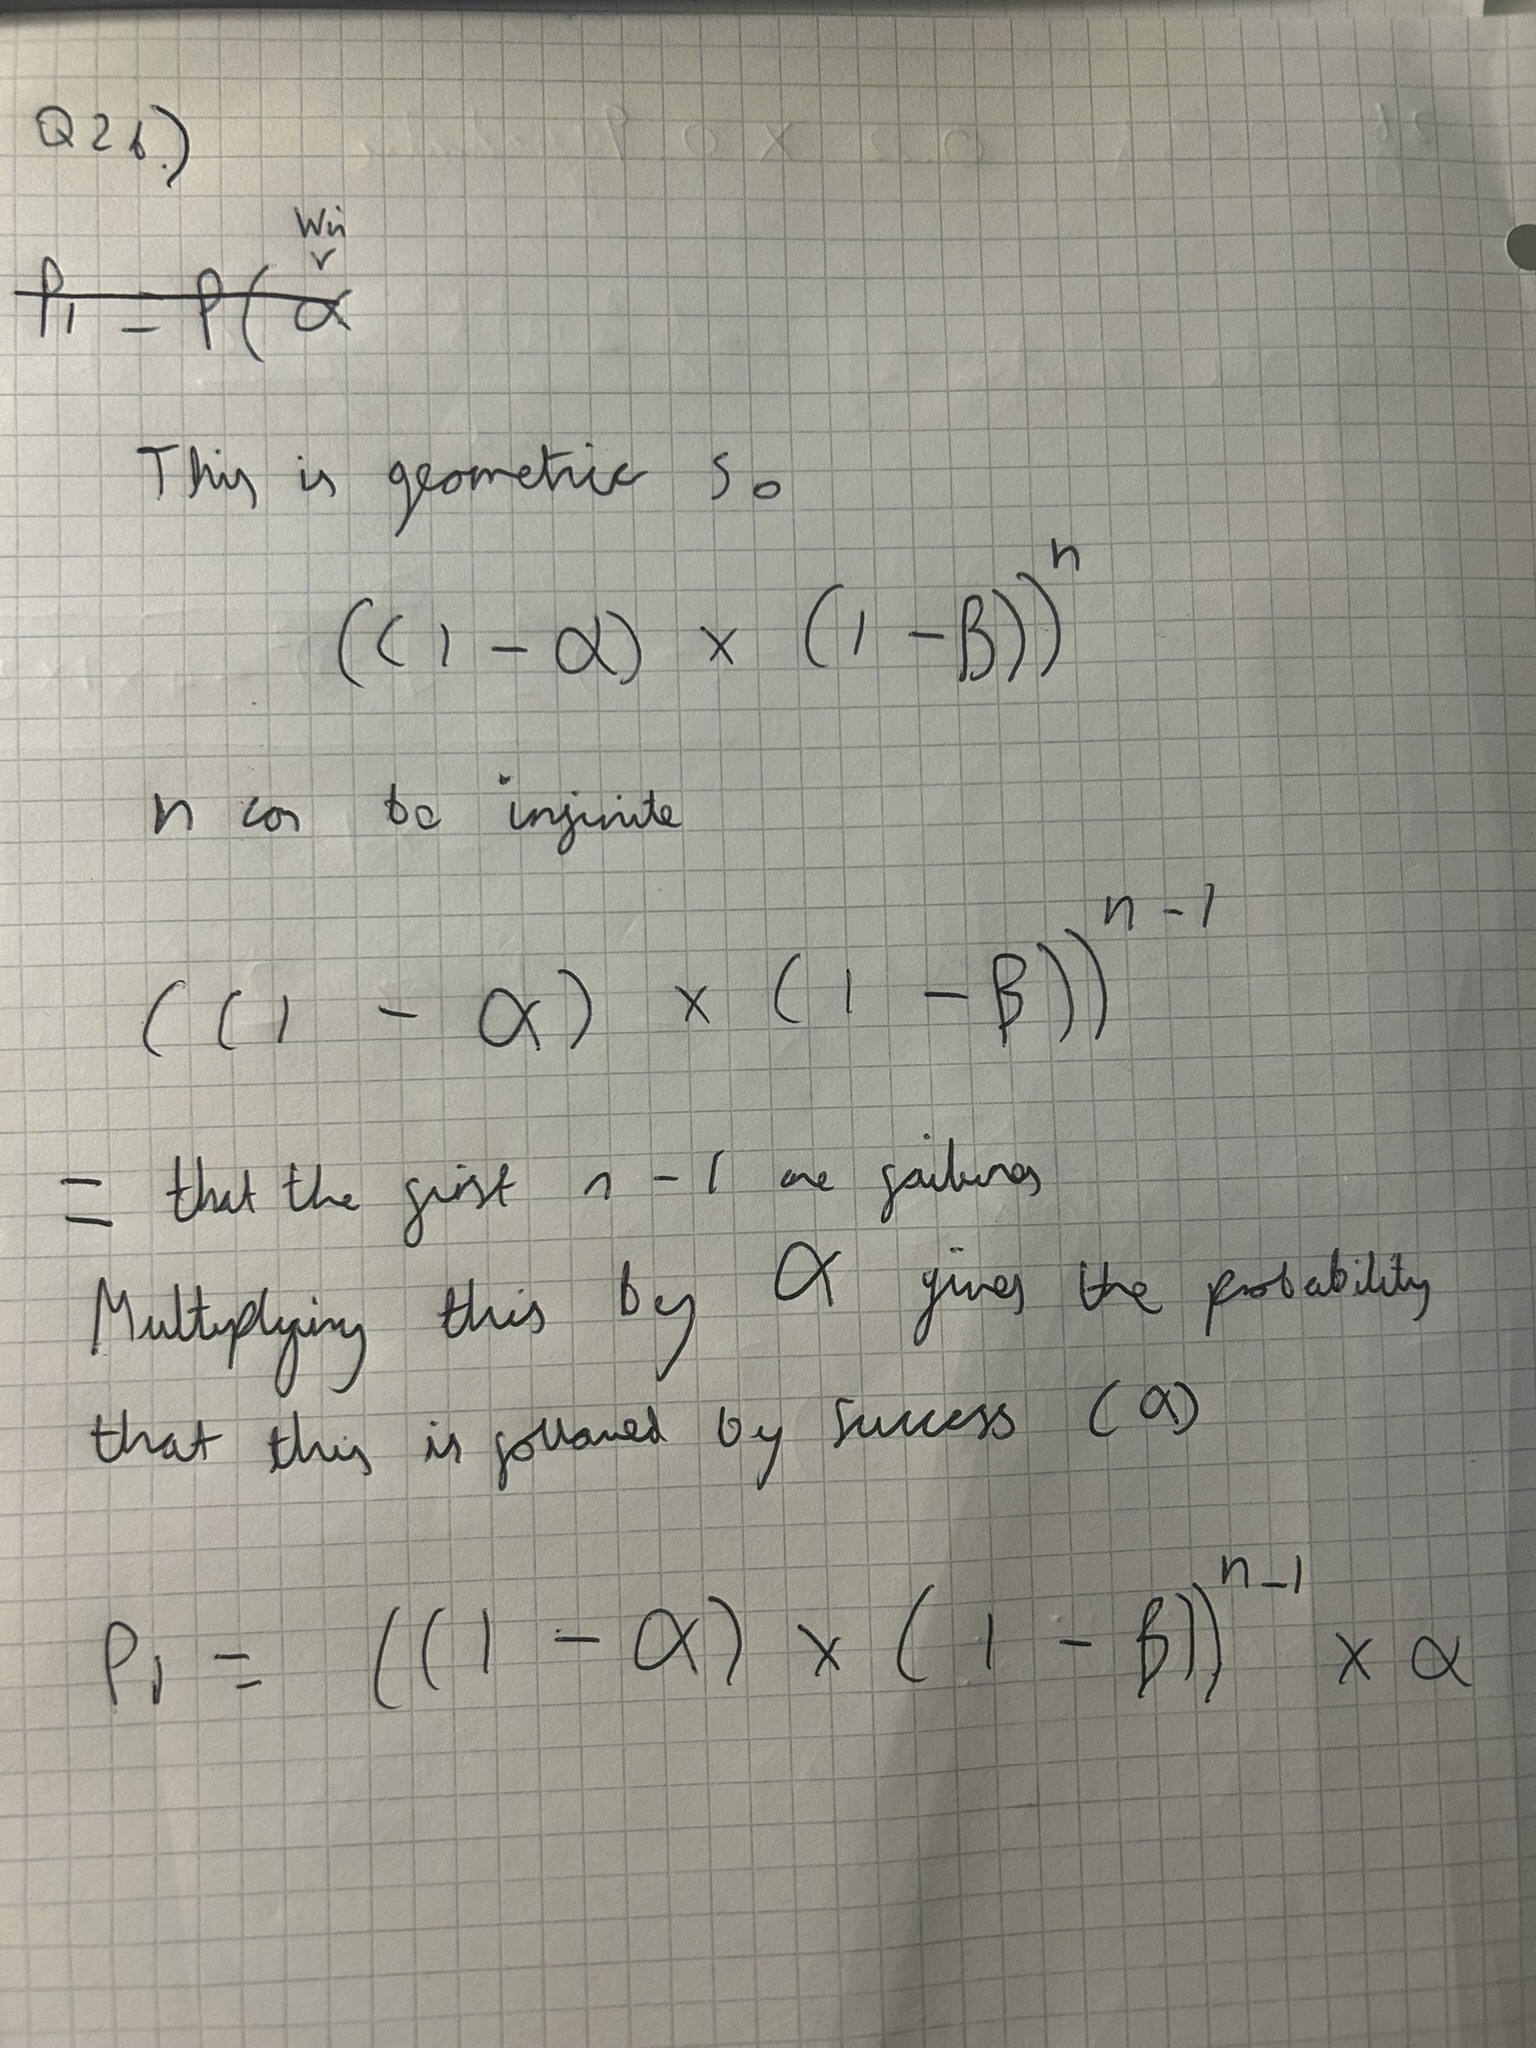 Q2b.)
Win
P₁ = P(α
This is geometric so
((1 - α) × (1 - β))ⁿ
n can be infinite
((1 - α) × (1 - β))ⁿ⁻¹
= that the first n-1 are failures
Multiplying this by α gives the probability
that this is followed by success (α)
P₁ = ((1 - α) × (1 - β))ⁿ⁻¹ × α